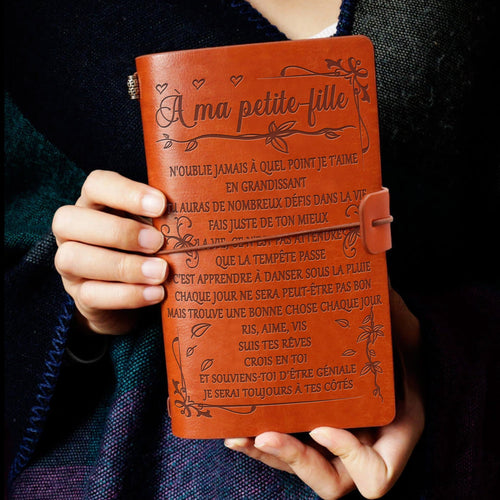 À ma petite-fille
N'OUBLIE JAMAIS À QUEL POINT JE T'AIME
EN GRANDISSANT
AURAS DE NOMBREUX DÉFIS DANS LA VIE
FAIS JUSTE DE TON MIEUX
LA VIE, CE N'EST PAS ATTENDRE
QUE LA TEMPÊTE PASSE
C'EST APPRENDRE À DANSER SOUS LA PLUIE
CHAQUE JOUR NE SERA PEUT-ÊTRE PAS BON
MAIS TROUVE UNE BONNE CHOSE CHAQUE JOUR
RIS, AIME, VIS
SUIS TES RÊVES
CROIS EN TOI
ET SOUVIENS-TOI D'ÊTRE GÉNIALE
JE SERAI TOUJOURS À TES CÔTÉS